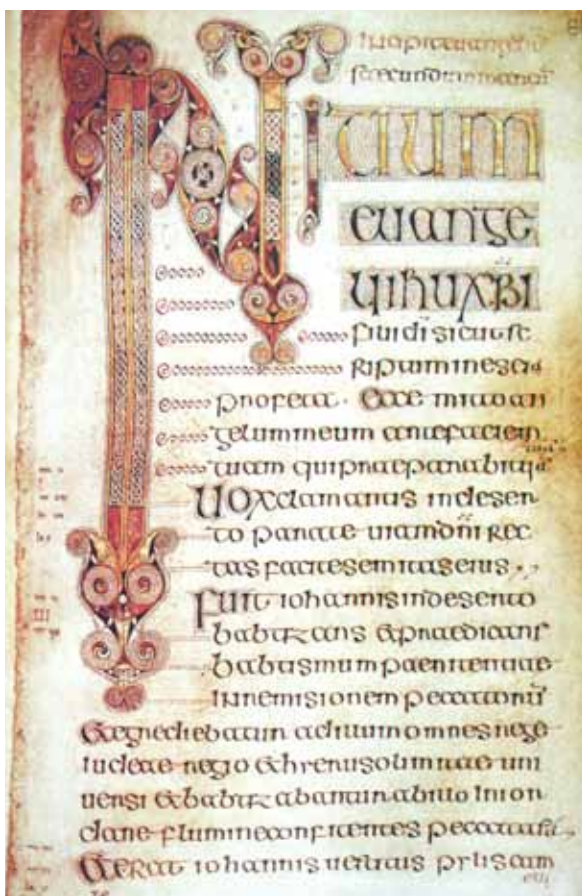 secundum marcu
INITIUM
euange
lii ihu xpi
filii di sicut sc
riptum in esaia
profeta · Ecce mitto an
gelum meum ante faciem
tuam qui praeparabit uia
Uox clamantis in desert
to parate uiam dni rec
tas facite semitas eius
Fuit iohannis in deserto
babtizans & praedicans
babtismum paenitentiae
in remisionem peccatoru
& egrediebatur ad illum omnes rege
iudeae regio & hierusolimitae uni
uersi & babtizabantur ab illo in ior
dane flumine confitentes peccata sua
& erat iohannis uestitus pilis cam